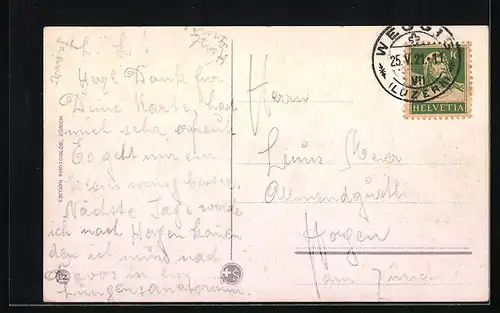 L. L.!
Herzl. Dank für
Deine Karte, hat
mich sehr erfreut.
Es geht mir ein
klein wenig besser.
Nächste Tage werde
ich nach Hause kommen
dann ich muss nach
Davos in ein
Lungensanatorium.
EDITION PHOTOGLOB, ZÜRICH
WEGGIS
25.V.21
VII
(LUZERN)
HELVETIA
Herrn
Linus Meier
Allmendgüetli
Horgen
am Zürich